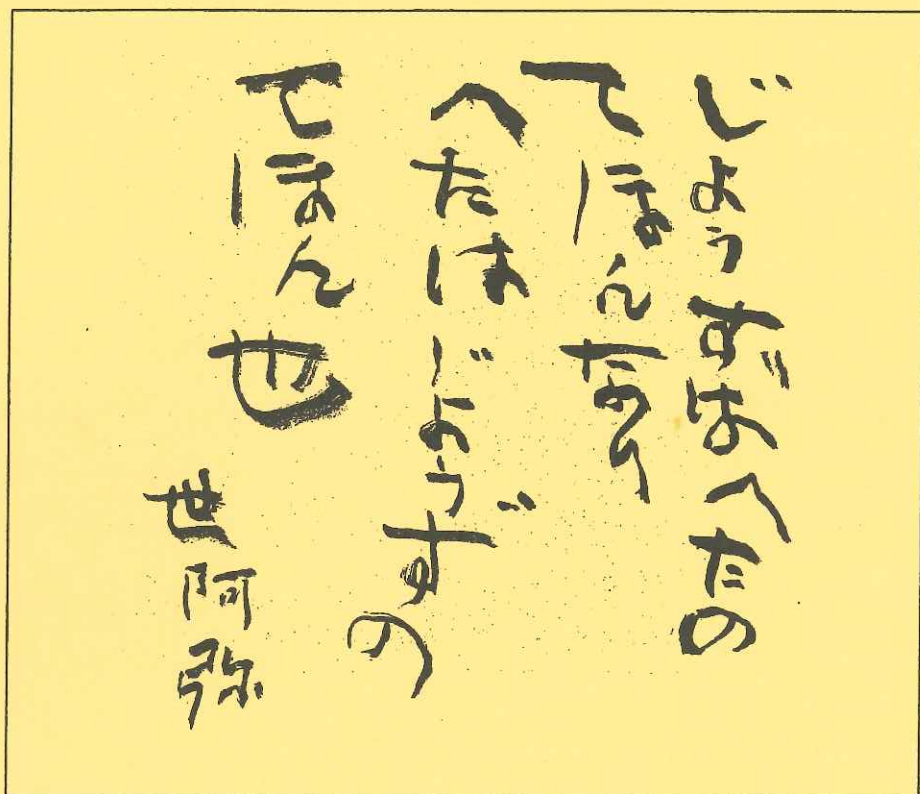 じょうずはへたの
てほんなり
へたはじょうずの
てほん也
世阿弥